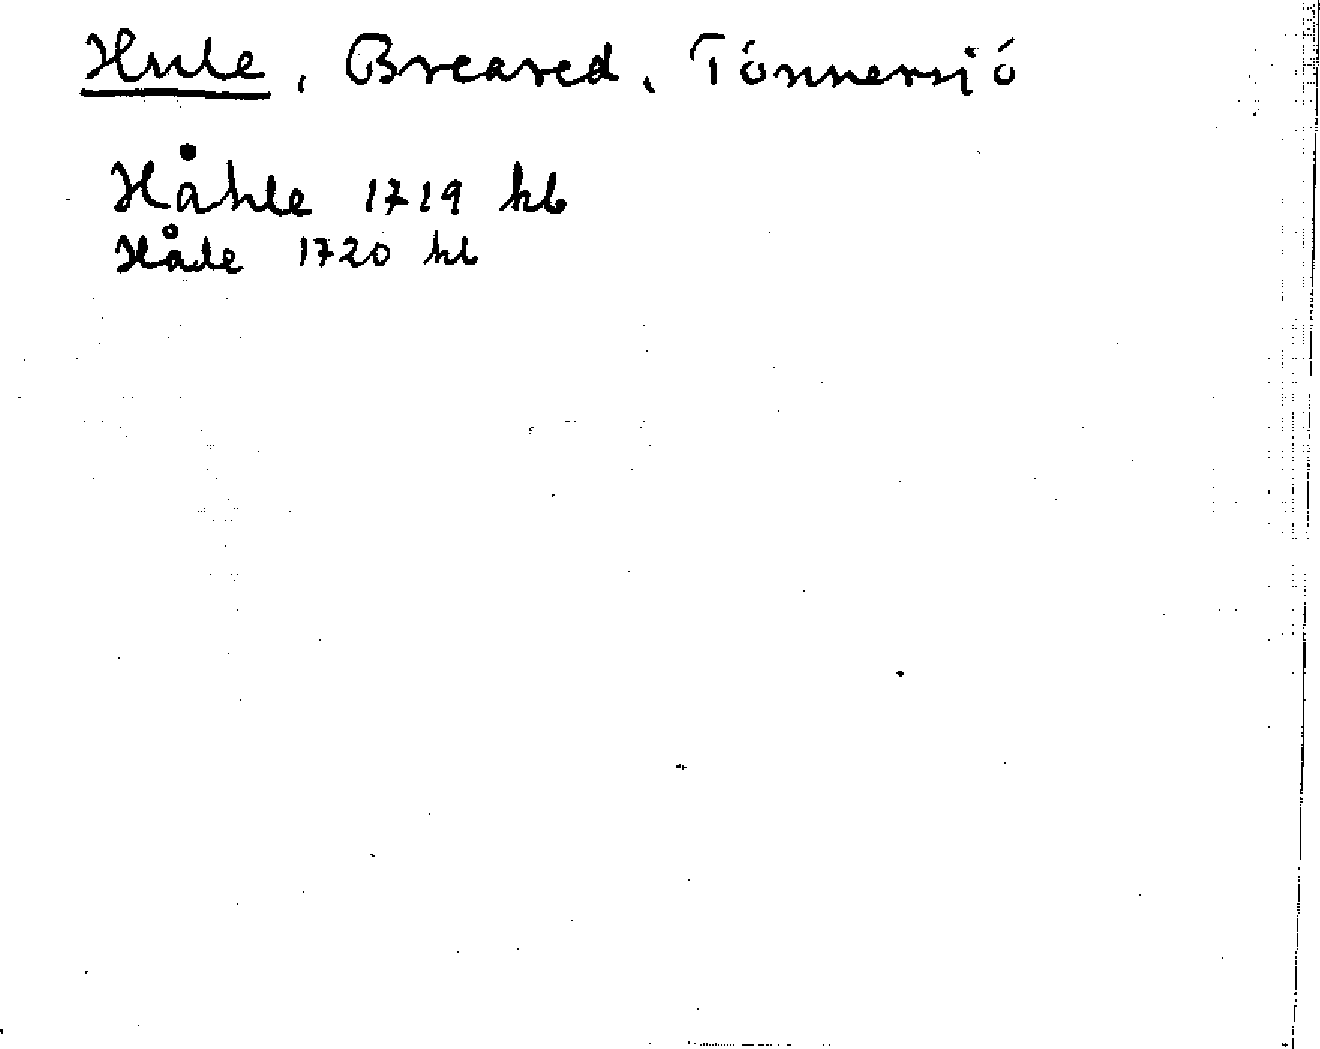 Hule, Breared, Tönnersjö
Håhle 1719 hb
Håle 1720 hb